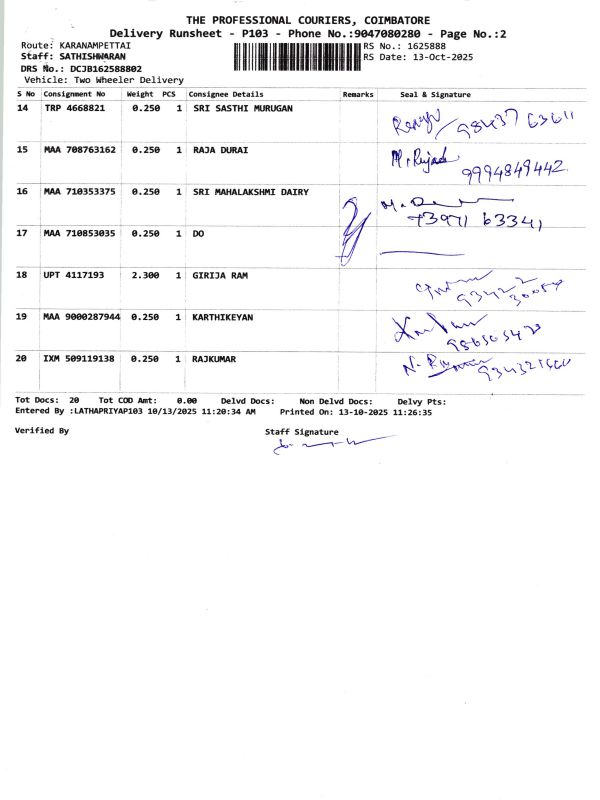 THE PROFESSIONAL COURIERS, COIMBATORE
Delivery Runsheet - P103 - Phone No.:9047080280 - Page No.:2
Route: KARANAMPETTAI RS No.: 1625888
Staff: SATHISHWARAN RS Date: 13-Oct-2025
DRS No.: DCJB162588802
Vehicle: Two Wheeler Delivery
S No Consignment No Weight PCS Consignee Details Remarks Seal & Signature
14 TRP 4668821 0.250 1 SRI SASTHI MURUGAN
98437 63611
15 MAA 708763162 0.250 1 RAJA DURAI
9994849442
16 MAA 710353375 0.250 1 SRI MAHALAKSHMI DAIRY
73971 63341
17 MAA 710853035 0.250 1 DO
18 UPT 4117193 2.300 1 GIRIJA RAM
19 MAA 9000287944 0.250 1 KARTHIKEYAN
20 IXM 509119138 0.250 1 RAJKUMAR
Tot Docs: 20 Tot COD Amt: 0.00 Delvd Docs: Non Delvd Docs: Delvy Pts:
Entered By :LATHAPRIYAP103 10/13/2025 11:20:34 AM Printed On: 13-10-2025 11:26:35
Verified By Staff Signature